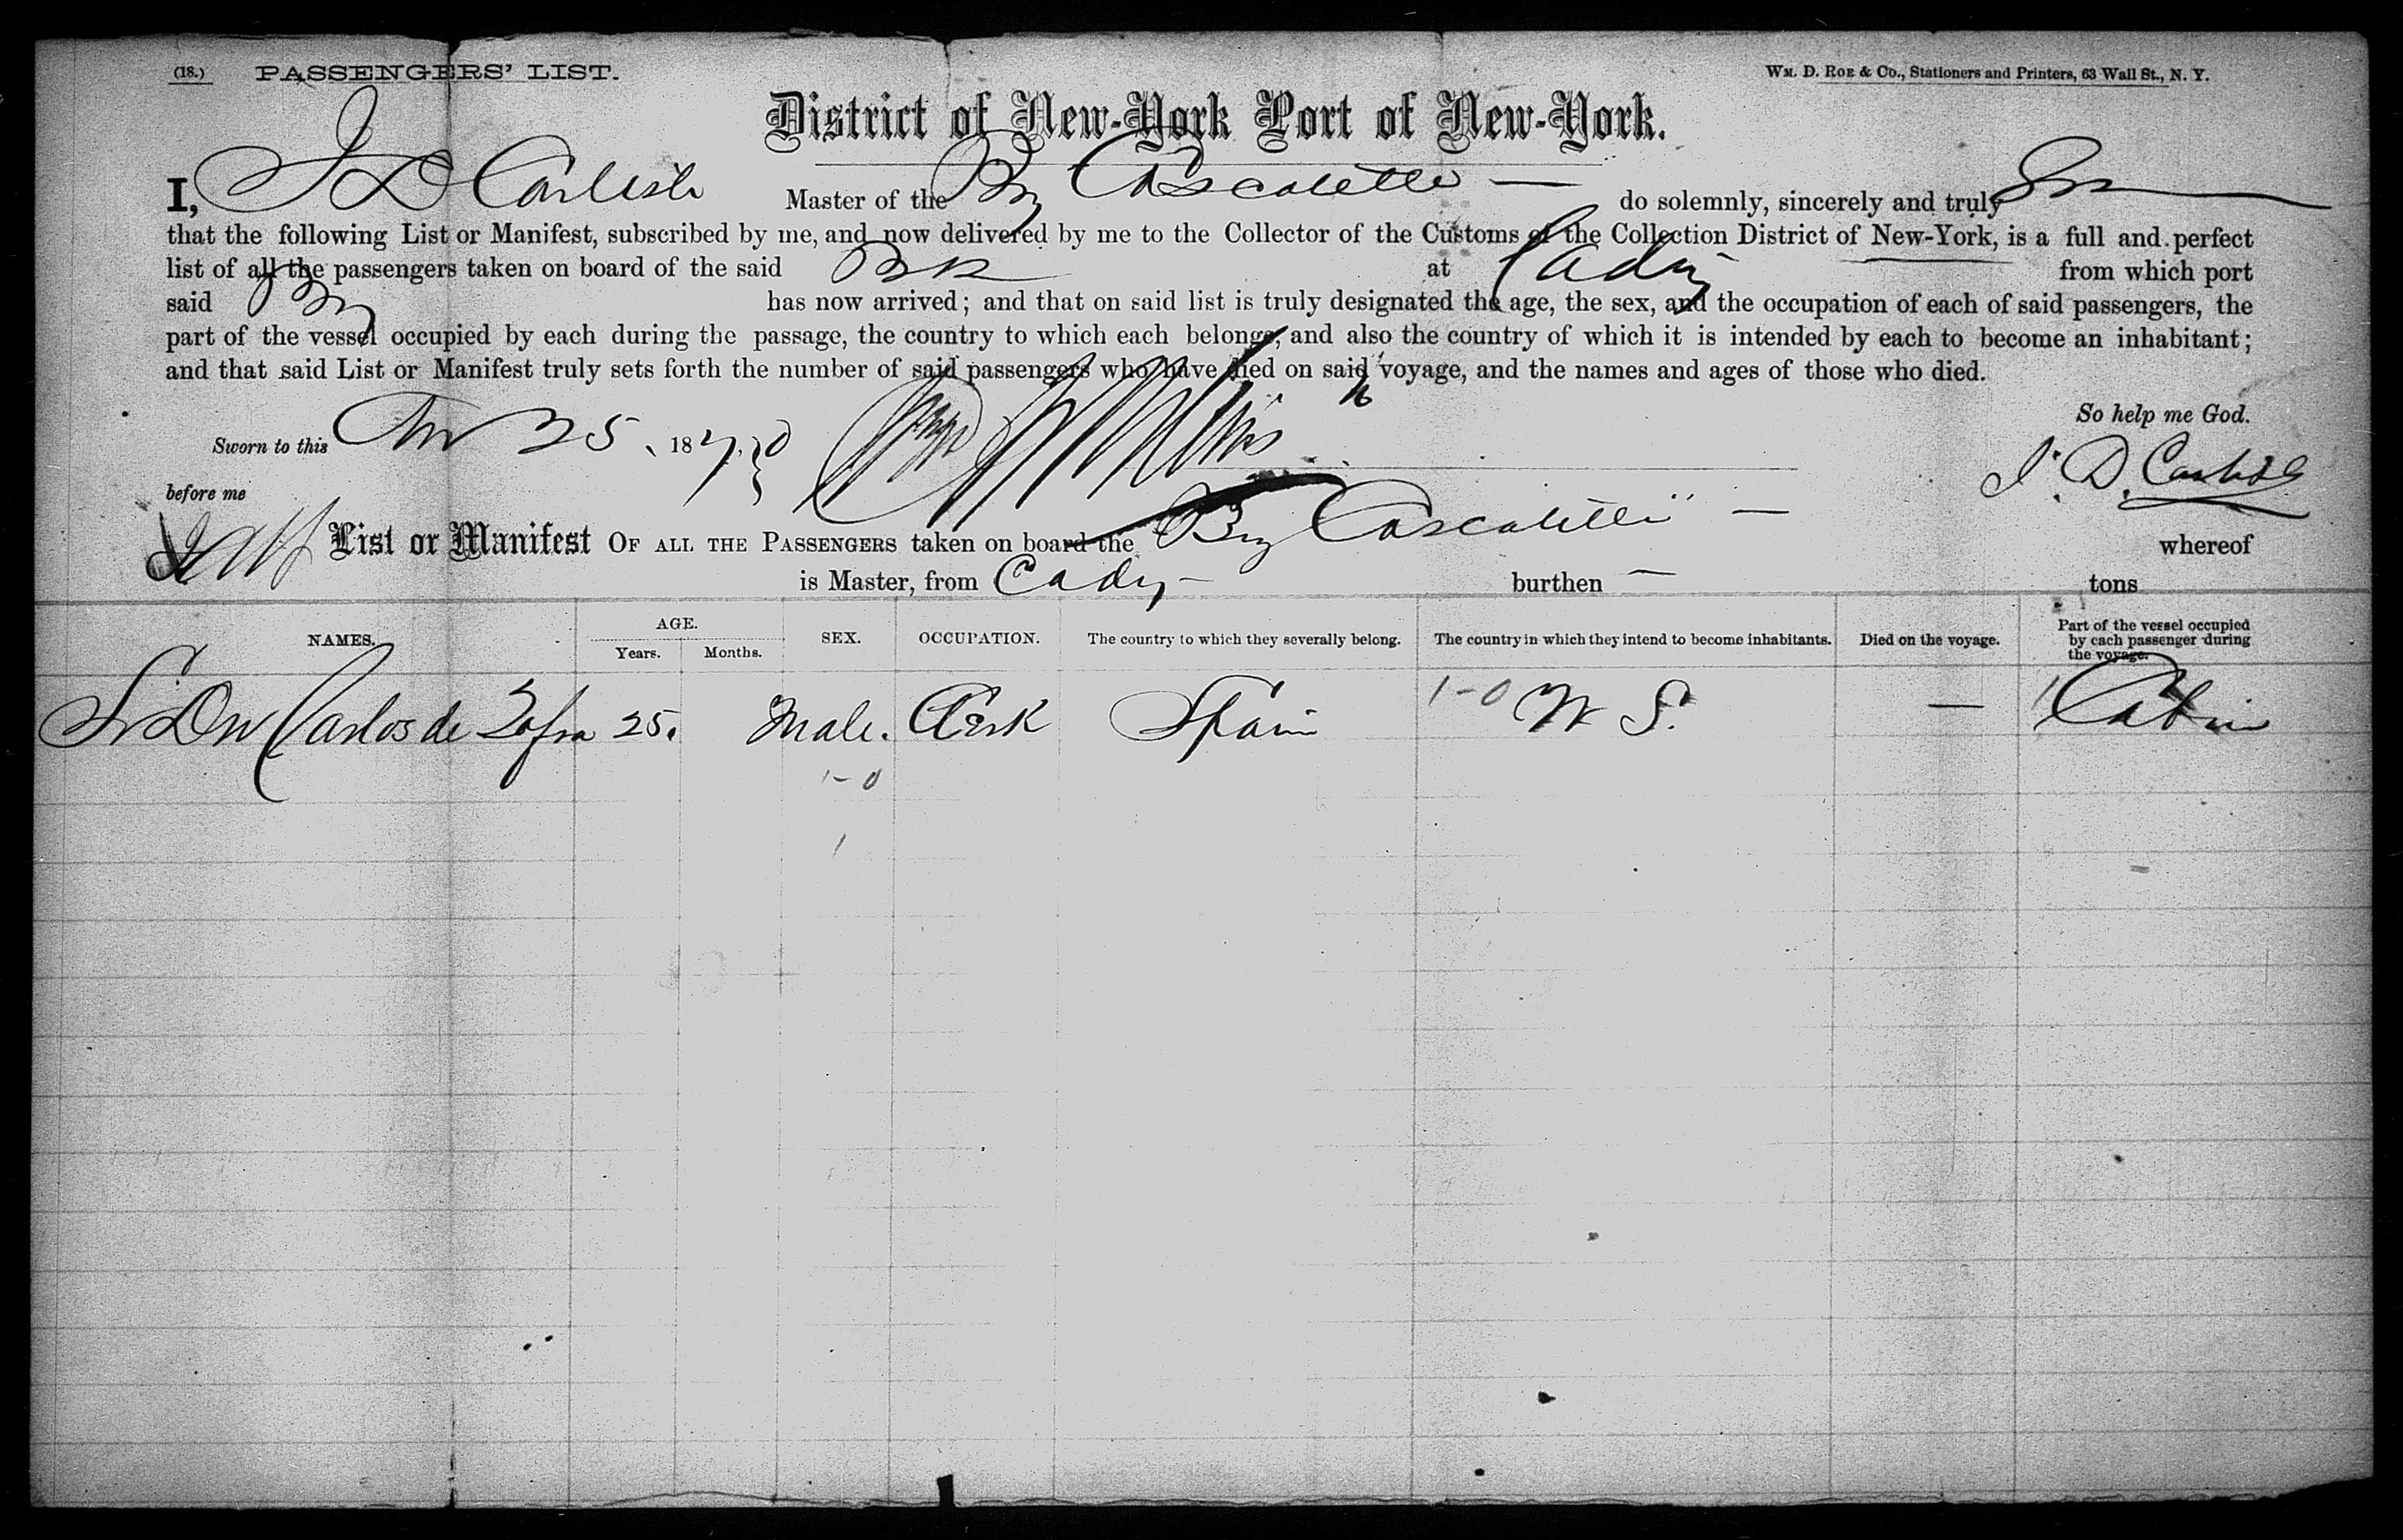 (18.) PASSENGERS' LIST. WM. D. ROE & CO., Stationers and Printers, 63 Wall St., N. Y.
District of New-York Port of New-York.
I, J D Carlisle Master of the Brg Cascatelle — do solemnly, sincerely and truly
that the following List or Manifest, subscribed by me, and now delivered by me to the Collector of the Customs of the Collection District of New-York, is a full and perfect
list of all the passengers taken on board of the said at Cadiz from which port
said Brg has now arrived; and that on said list is truly designated the age, the sex, and the occupation of each of said passengers, the
part of the vessel occupied by each during the passage, the country to which each belongs, and also the country of which it is intended by each to become an inhabitant;
and that said List or Manifest truly sets forth the number of said passengers who have died on said voyage, and the names and ages of those who died.
So help me God.
Sworn to this Nov 25, 1870
J. D. Carlisle
before me
List or Manifest OF ALL THE PASSENGERS taken on board the Brg Cascatelle — whereof
is Master, from Cadiz — burthen — tons
NAMES. AGE. Years. Months. SEX. OCCUPATION. The country to which they severally belong. The country in which they intend to become inhabitants. Died on the voyage. Part of the vessel occupied by each passenger during the voyage.
Sr Dn Carlos de Zafra 25. Male. Clerk Spain 1-0 U S. — 1 Cabin
1-0
1